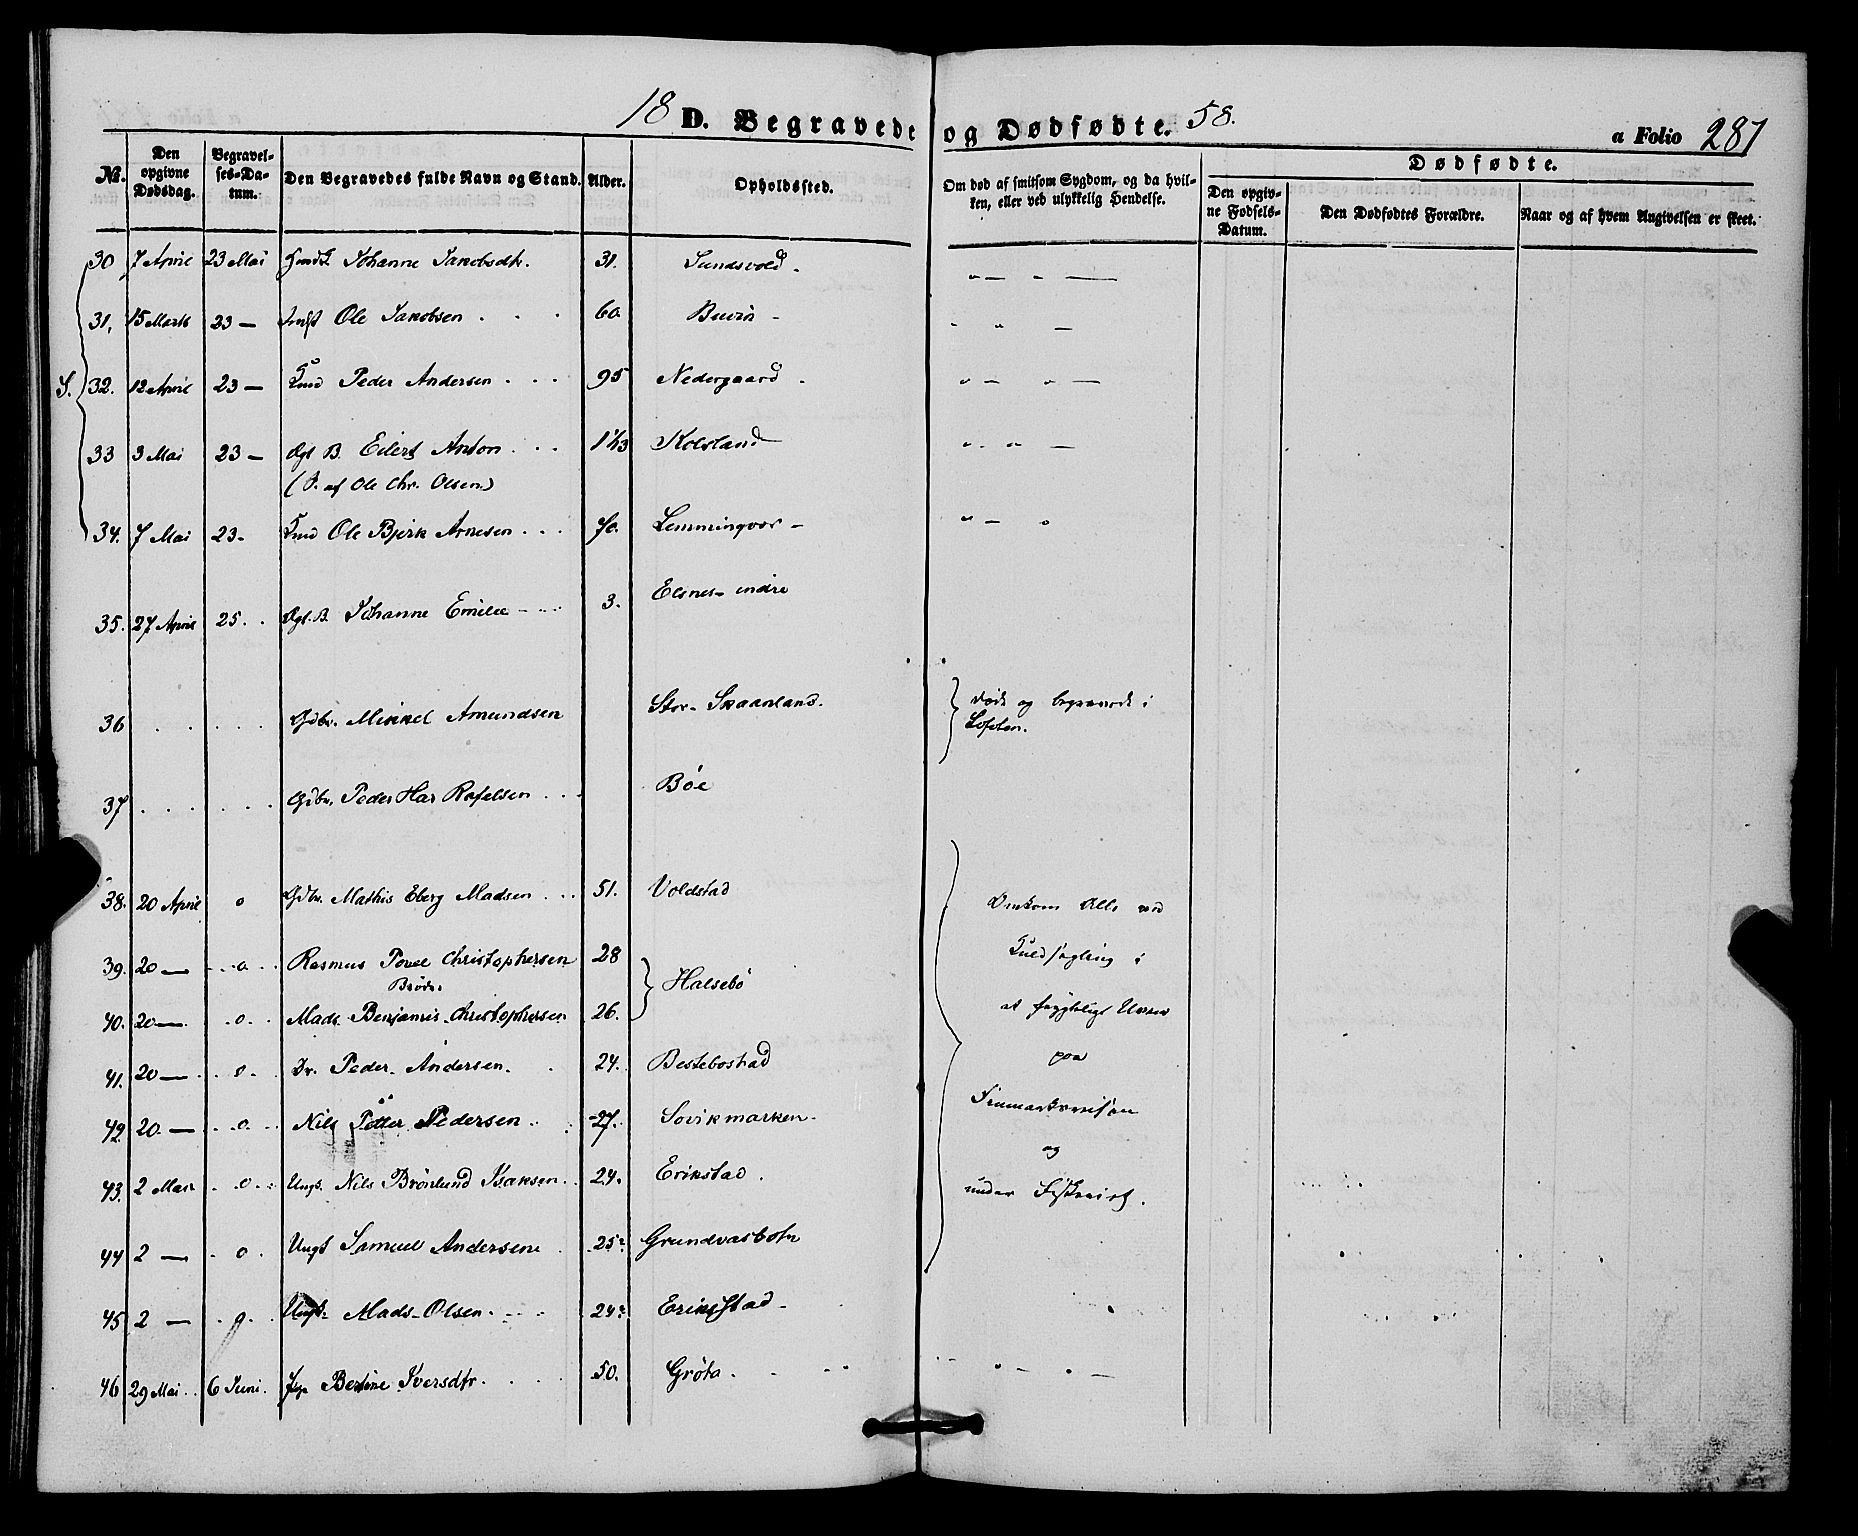 18 D. Begravede og Dødfødte. 58.
a Folio 281
No.
Den opgivne Dødsdag.
Begravelses-Datum.
Den Begravedes fulde Navn og Stand.
Alder.
Opholdssted.
Om død af smitsom Sygdom, og da hvilken, eller ved ulykkelig Hendelse.
Dødfødte.
Den opgivne Fødsels-Datum.
Den Dødfødtes Forældre.
Naar og af hvem Angivelsen er skeet.
30 7 April 23 Mai Johanne Jakobsdtr. 31. Sundsvold - " — " —
31, 15 Marts 23 — Ole Jakobsen . . . 60 - " " —
S. 32. 12 April 23 — Peder Andersen . . . 95 Nedergaard . " — " —
33 3 Mai 23 — B. Eilert Anton . . . Kolsland " " —
( af Ole Chr. Olsen.)
34. 7 Mai 23. Ole Bjerk Arnesen . . . 70. Lemmingvær - " — "
35. 27 April 25. . B. Johanne Emilie - - 3. Elsnes - indre
36 . . . . . Gdbr. Mikkel Amundsen Stor- Skaanland. døde og begravede i
Lofoten.
37 . . . . . . Gdbr. Peder Har Rafelsen . . . Böe
38. 20 April o Gdbr. Mathis Eberg Madsen . . . 51. Voldstad Omkom Alle ved
39. 20 — - . o . . Rasmus Povel Christophersen 28 Halsebö
Brödr. i
40. 20 — . o . Mads. Benjamin Christophersen 26. at
41. 20 — . . o . Peder Andersen. . 24. Bestebostad paa
42 20. — . . o. . . Nils Petter Pedersen . . 27. Sovikmarken -
og
43. 2 Mai . o . . Ungk. Nils Brönlund Isaksen . . 24. Erikstad . under
44 2 — . o . Ungk Samuel Andersen . 25 Grundvasbotn
45 2 — . o . Ungk. Mads Olsen . - - . 24 Erikstad -
46 29 Mai . . 6 Juni . Bertine Iversdtr. . . . 50. Gröta . - " — " —